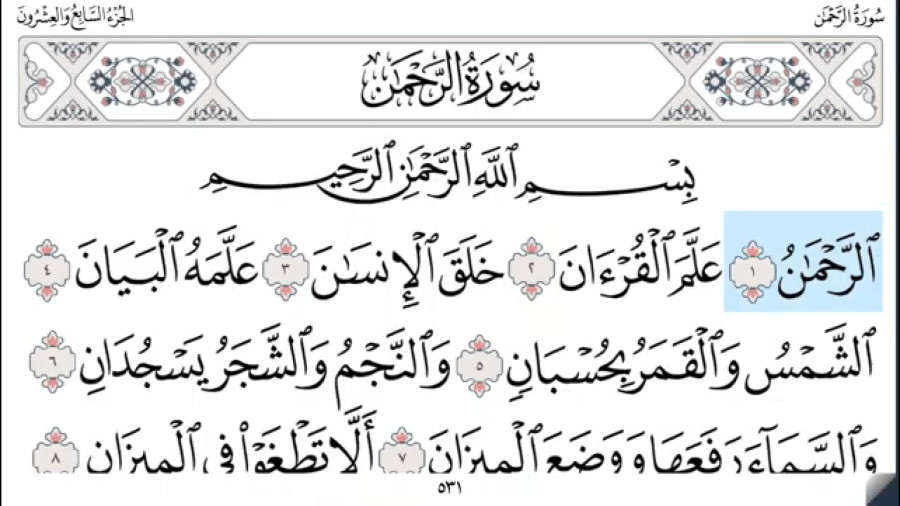 سُورَةُ الرَّحْمَٰن
الجُزْءُ السَّابِعُ وَالعِشْرُونَ
سُورَةُ الرَّحْمَٰن
بِسْمِ ٱللَّهِ ٱلرَّحْمَٰنِ ٱلرَّحِيمِ
ٱلرَّحْمَٰنُ ١ عَلَّمَ ٱلْقُرْءَانَ ٢ خَلَقَ ٱلْإِنسَٰنَ ٣ عَلَّمَهُ ٱلْبَيَانَ ٤
ٱلشَّمْسُ وَٱلْقَمَرُ بِحُسْبَانٍ ٥ وَٱلنَّجْمُ وَٱلشَّجَرُ يَسْجُدَانِ ٦
وَٱلسَّمَآءَ رَفَعَهَا وَوَضَعَ ٱلْمِيزَانَ ٧ أَلَّا تَطْغَوْا۟ فِى ٱلْمِيزَانِ ٨
٥٣١